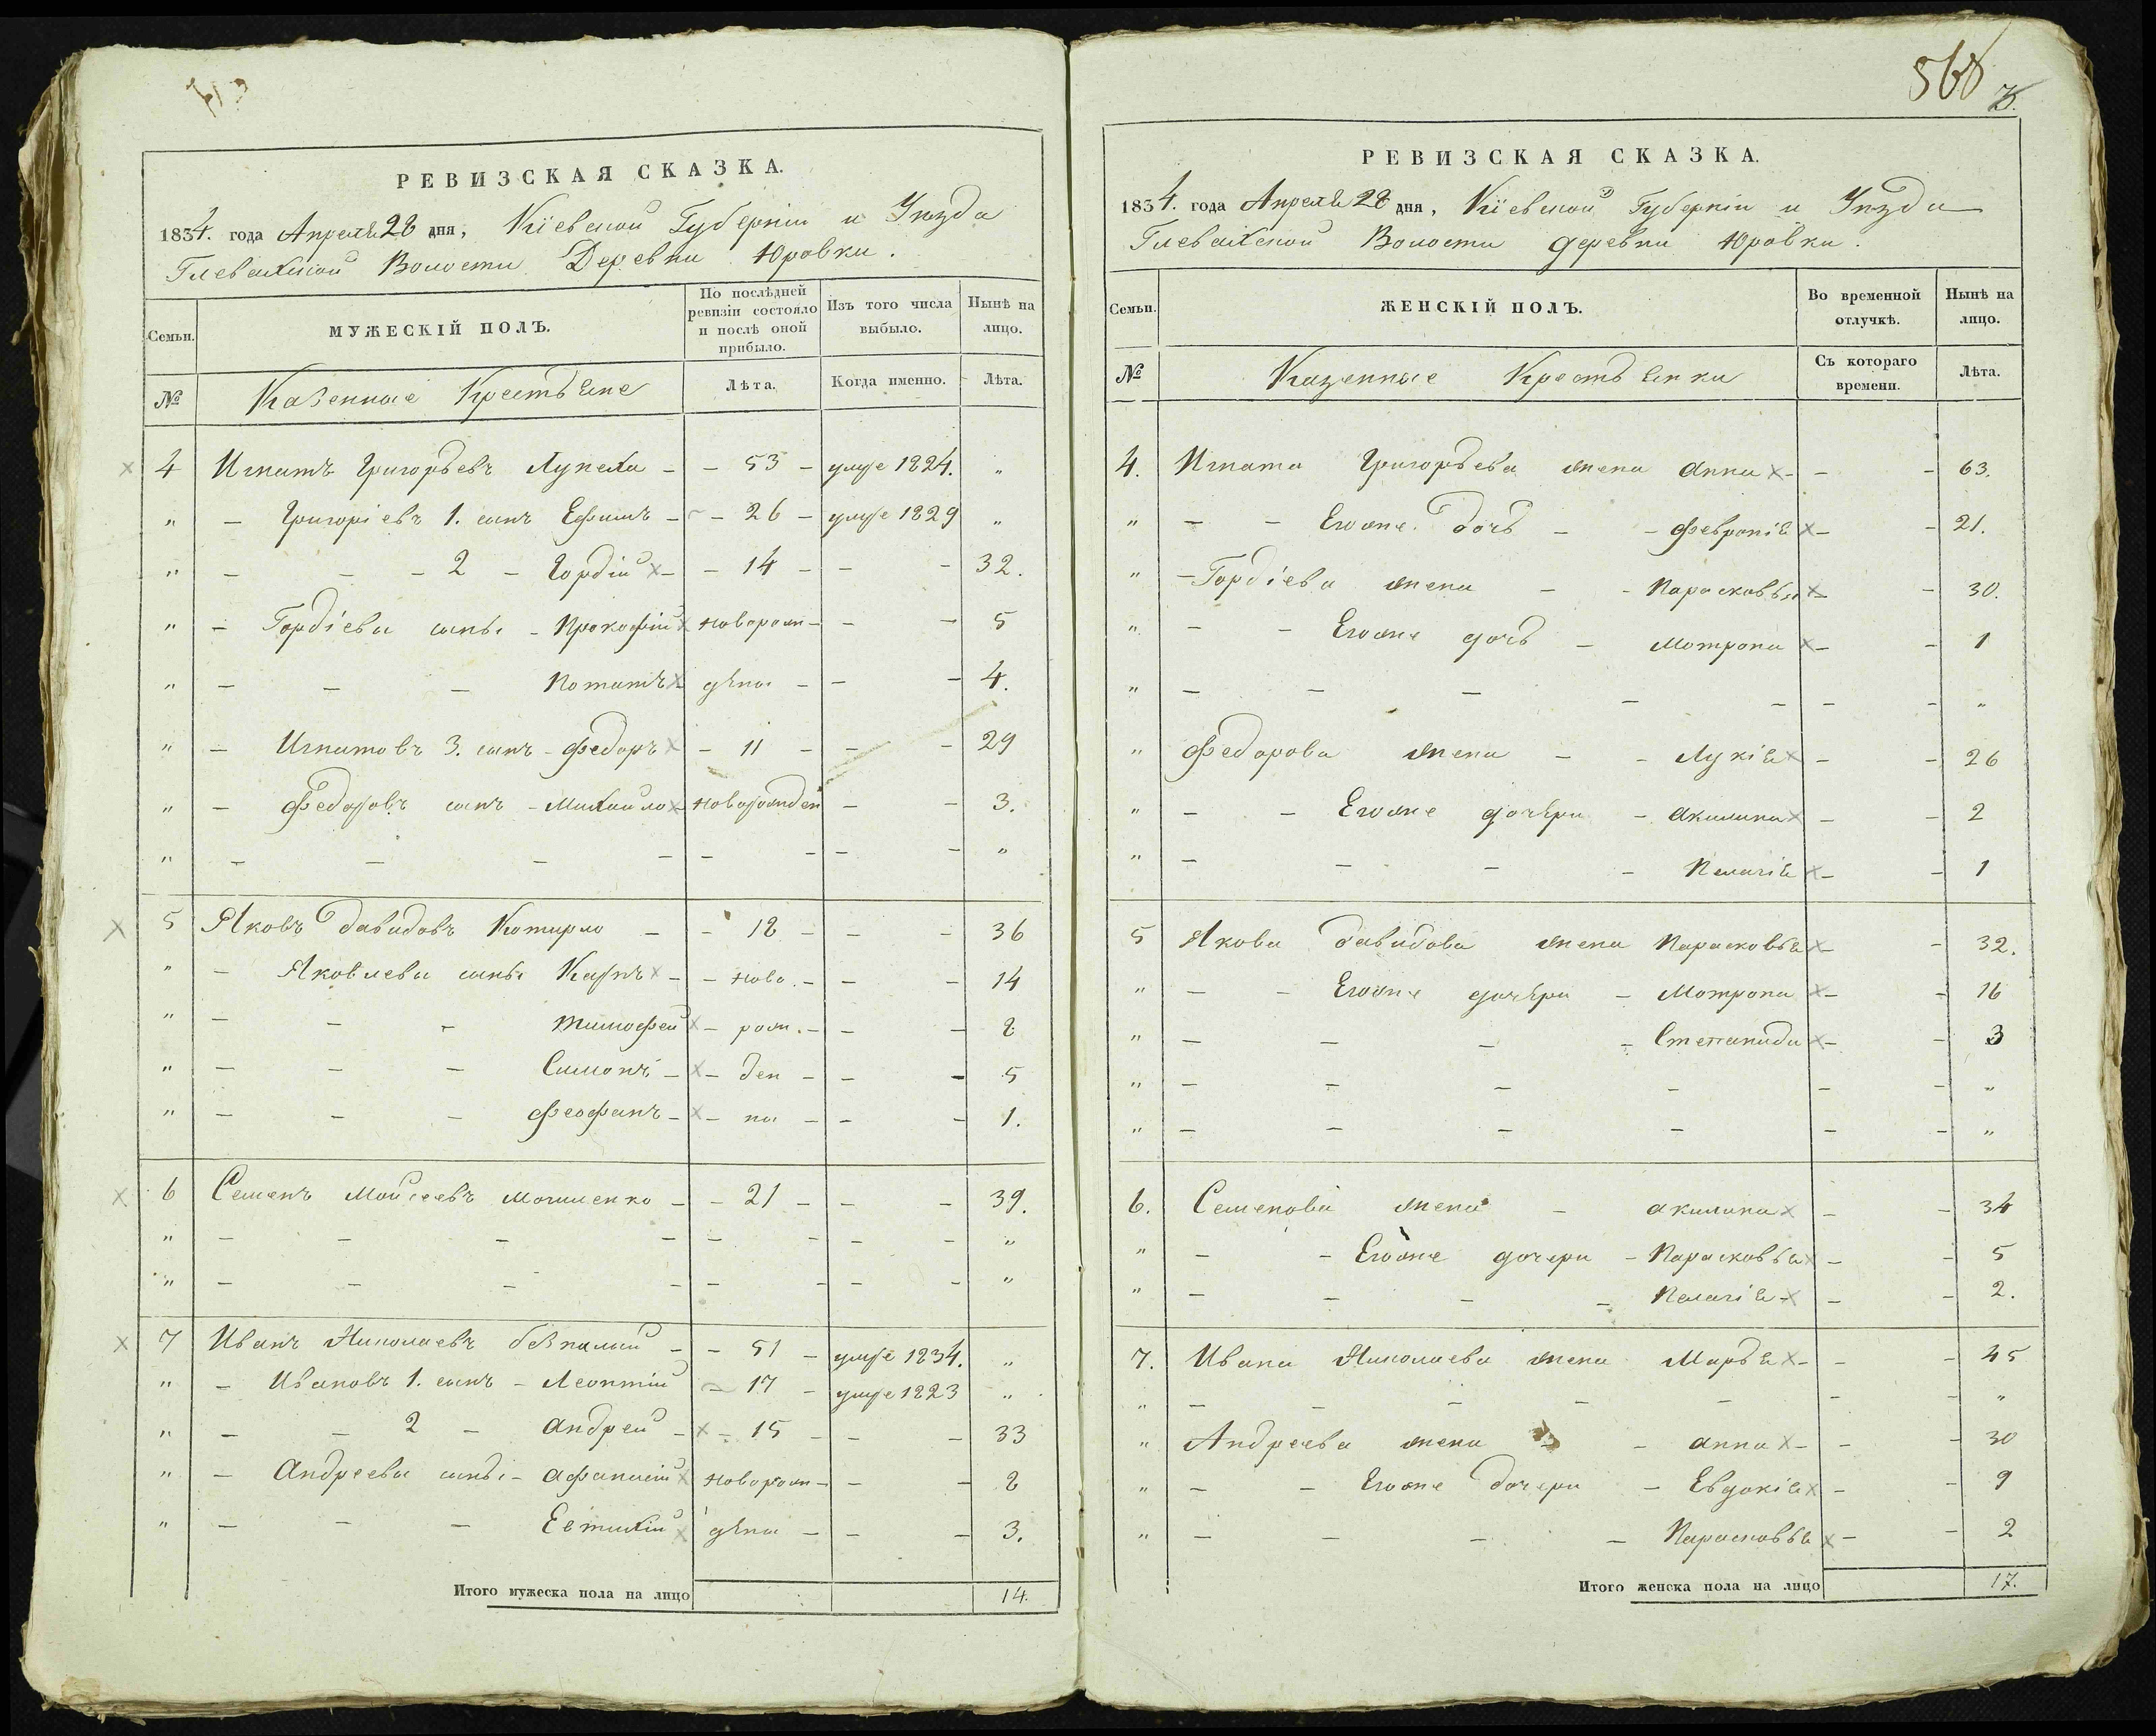 РЕВИЗСКАЯ СКАЗКА.
1834. года Апреля 28 дня, Кіевской Губерніи и Уѣзда
Глевахской Волости Деревни Юровки.
Семьи. МУЖЕСКІЙ ПОЛЪ. По послѣдней ревизіи состояло и послѣ оной прибыло. Изъ того числа выбыло. Нынѣ на лицо.
№ Казенные Крестьяне Лѣта. Когда именно. Лѣта.
4 Игнатъ Григорьевъ - - 53 - умре 1824. "
" - Григоріевъ 1. сынъ Ефимъ - - 26 - умре 1829 "
" - - - 2 - Гордій - - 14 - - - 32.
" - Гордіевы сыны - Прокофій новорож - - - 5
" - - - Потапъ дены - - - 4.
" - Игнатовъ 3. сынъ - Федоръ - 11 - - - 29
" - Федоровъ сынъ - Михайло новорожден - - 3.
" - - - - - - - - "
5 Яковъ Давидовъ Котирло - - 18 - - - 36
" - Яковлевы сыны Карпъ - - ново. - - - 14
" - - - Тимофей - рож. - - - 8
" - - - Симонъ - - ден - - - 5
" - - - Феофанъ - - ны - - - 1.
6 Семенъ Моисеевъ Мошленко - - 21 - - - 39.
" - - - - - - - - "
" - - - - - - - - "
7 Иванъ Николаевъ Безпалый - - 51 - умре 1834. "
" - Ивановъ 1. сынъ - Леонтій - 17 - умре 1823 "
" - - 2 - Андрей - - 15 - - - 33
" - Андреевы сыны - Афанасій новорож - - - 8
" - - - Евтихій дены - - - 3.
Итого мужеска пола на лицо 14.
568
РЕВИЗСКАЯ СКАЗКА.
1834. года Апреля 28 дня, Кіевской Губерніи и Уѣзда
Глевахской Волости деревни Юровки.
Семьи. ЖЕНСКІЙ ПОЛЪ. Во временной отлучкѣ. Нынѣ на лицо.
№ Казенные Крестьянки Съ котораго времени. Лѣта.
4. Игната Григорьева жена Анна - - - 63.
" - - Егоже дочь - - Февронія - - 21.
" - Гордіева жена - - Парасковья - - 30.
" - - Егоже дочь - Мотрона - - 1
" - - - - - - - "
" Федорова жена - - Лукія - - 26
" - - Егоже дочѣри - Акилина - - 2
" - - - - Пелагія - - 1
5 Якова Давидова жена Парасковья - - 32.
" - - Егоже дочѣри - Мотрона - - 16
" - - - - Степанида - - 3
" - - - - - - "
" - - - - - - "
6. Семенова жена - Акилина - - 34
" - - Егоже дочери - Парасковья - - 5
" - - - - Пелагія - - - 2.
7. Ивана Николаева жена Марья - - - 45
" - - - - - - - "
" Андреева жена - - Анна - - - 30
" - - Егоже дочери - Евдокія - - 9
" - - - - Парасковья - - 2
Итого женска пола на лицо 17.